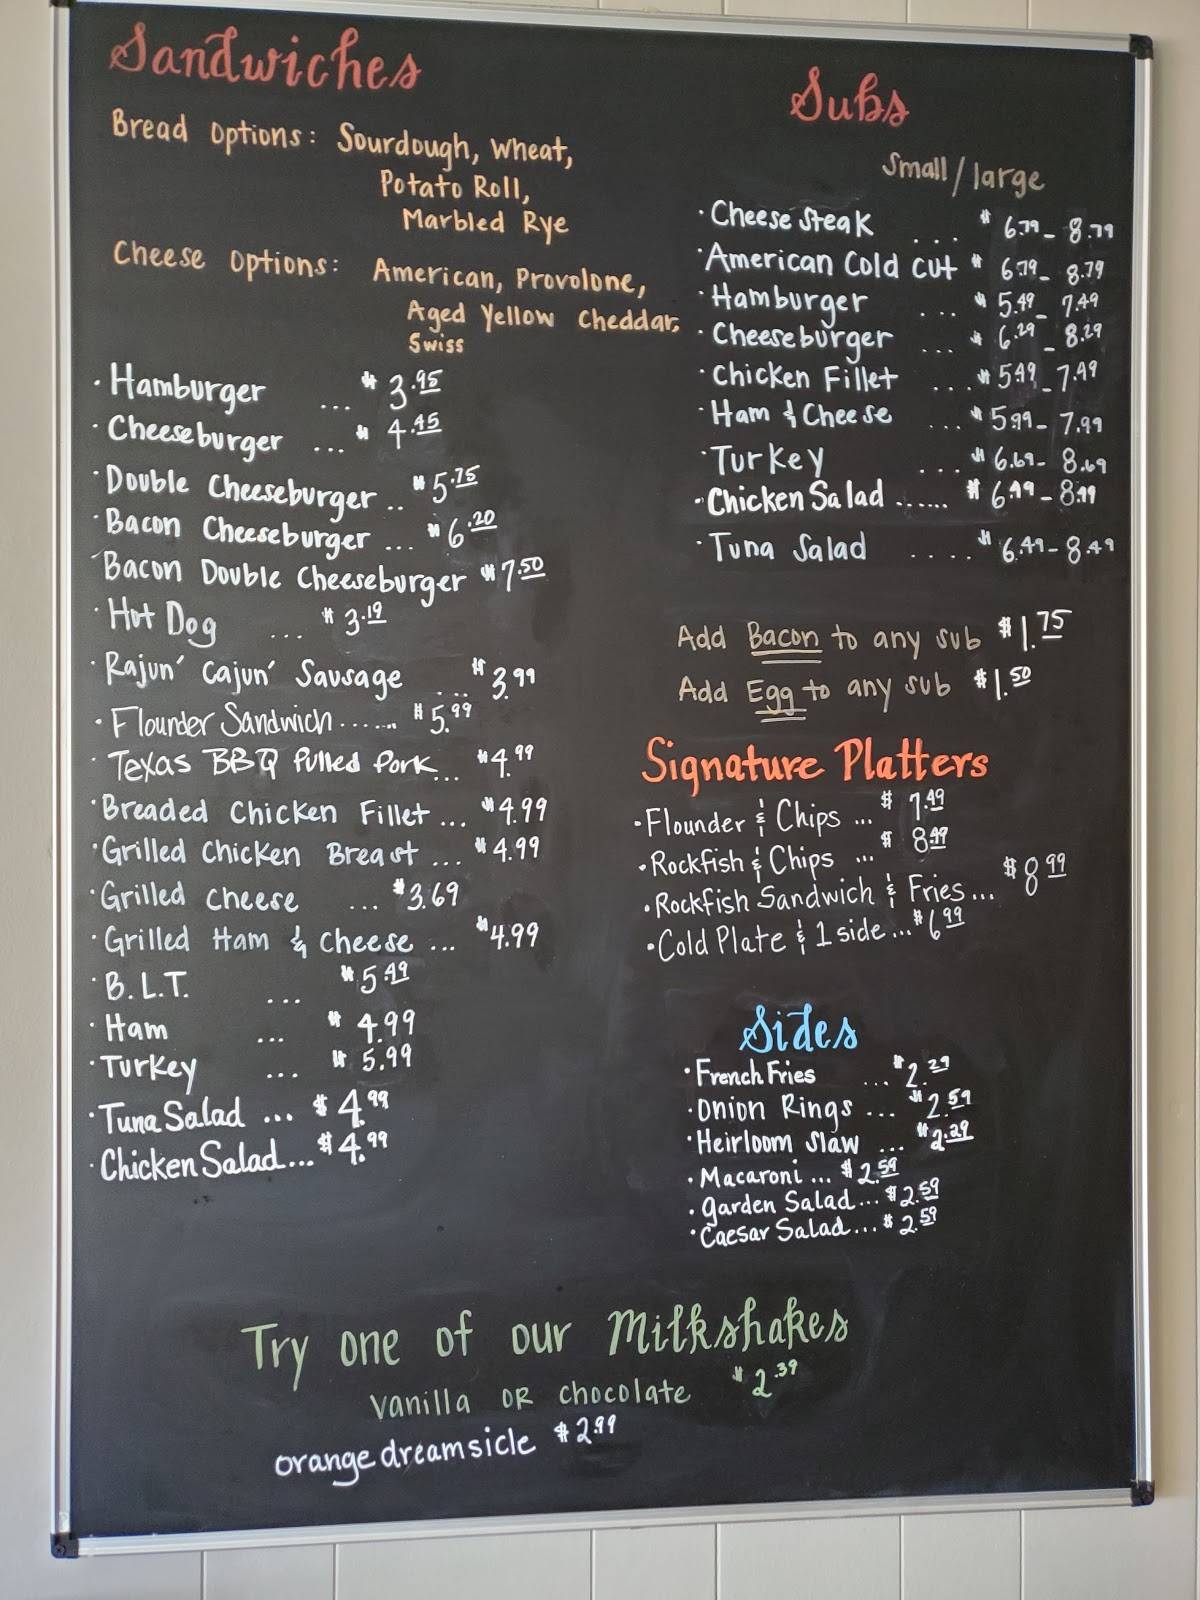 Sandwiches
Bread Options: Sourdough, Wheat,
Potato Roll,
Marbled Rye
Cheese Options: American, Provolone,
Aged Yellow Cheddar,
Swiss
· Hamburger ... $3.95
· Cheeseburger ... $4.45
· Double Cheeseburger .. $5.75
· Bacon Cheeseburger ... $6.20
· Bacon Double Cheeseburger $7.50
· Hot Dog ... $3.19
· Rajun' Cajun' Sausage ... $3.99
· Flounder Sandwich ...... $5.99
· Texas BBQ Pulled Pork... $4.99
· Breaded Chicken Fillet ... $4.99
· Grilled Chicken Breast ... $4.99
· Grilled Cheese ... $3.69
· Grilled Ham & Cheese ... $4.99
· B.L.T. ... $5.49
· Ham ... $4.99
· Turkey ... $5.99
· Tuna Salad ... $4.99
· Chicken Salad... $4.99
Subs
Small / large
· Cheese Steak ... $6.79 - 8.79
· American Cold Cut $6.79 - 8.79
· Hamburger ... $5.49 - 7.49
· Cheeseburger ... $6.29 - 8.29
· Chicken Fillet ... $5.49 - 7.49
· Ham & Cheese ... $5.99 - 7.99
· Turkey ... $6.69 - 8.69
· Chicken Salad ...... $6.49 - 8.49
· Tuna Salad .... $6.49 - 8.49
Add Bacon to any sub $1.75
Add Egg to any sub $1.50
Signature Platters
· Flounder & Chips ... $7.49
· Rockfish & Chips ... $8.49
· Rockfish Sandwich & Fries... $8.99
· Cold Plate & 1 side ... $6.99
Sides
· French Fries ... $2.29
· Onion Rings ... $2.59
· Heirloom Slaw ... $2.29
· Macaroni ... $2.59
· Garden Salad... $2.59
· Caesar Salad... $2.59
Try one of our Milkshakes
Vanilla OR Chocolate $2.39
orange dreamsicle $2.99